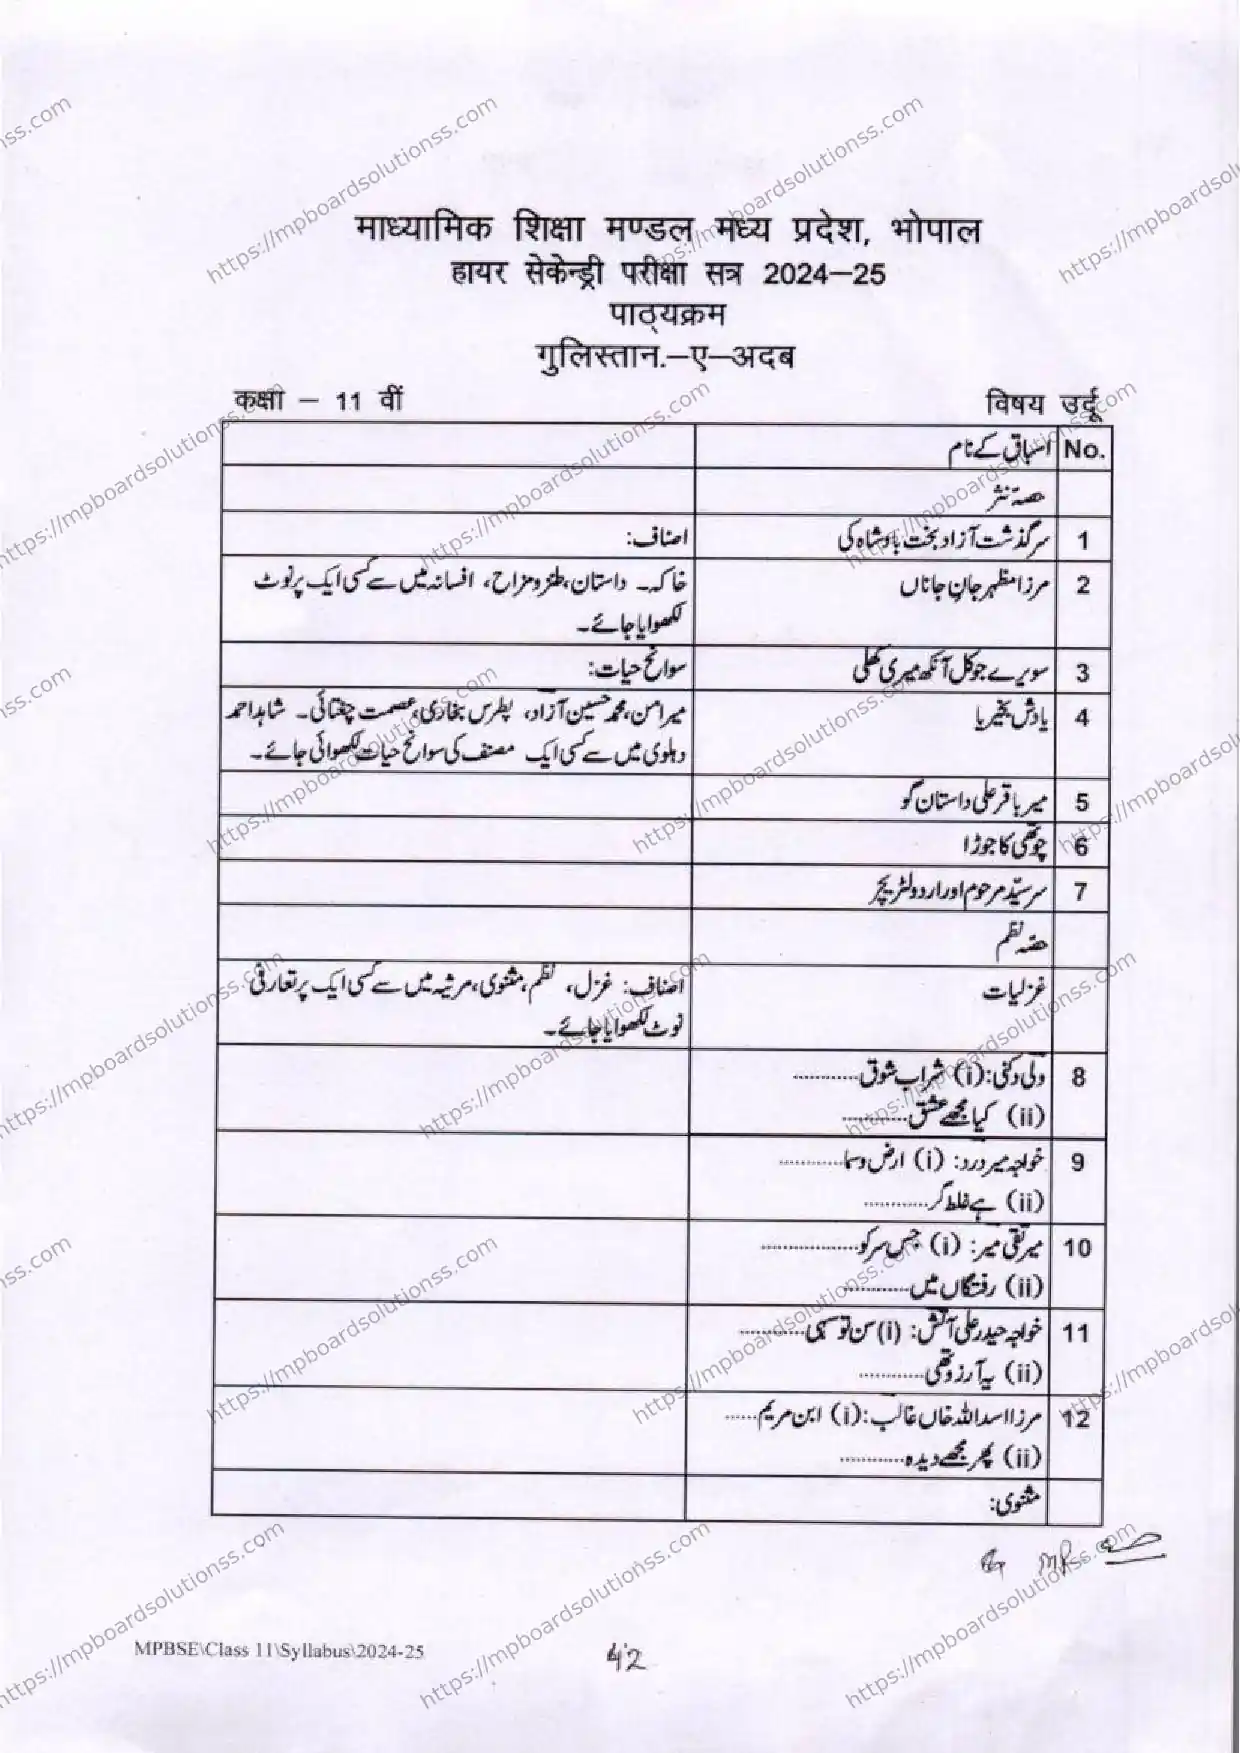 माध्यामिक शिक्षा मण्डल मध्य प्रदेश, भोपाल
हायर सेकेन्ड्री परीक्षा सत्र 2024–25
पाठ्यक्रम
गुलिस्तान.–ए–अदब
कक्षा – 11 वीं विषय उर्दू
No. اسباق کے نام
حصۂ نثر
1 سرگذشت آزاد بخت بادشاہ کی اصناف:
2 مرزا مظہر جانِ جاناں خاکہ۔ داستان، طنز و مزاح، افسانہ میں سے کسی ایک پر نوٹ
لکھوایا جائے۔
3 سویرے جو کل آنکھ میری کھلی سوانح حیات:
4 یادش بخیر یا میر امن، محمد حسین آزاد، پطرس بخاری، عصمت چغتائی۔ شاہد احمد
دہلوی میں سے کسی ایک مصنف کی سوانح حیات لکھوائی جائے۔
5 میر باقر علی داستان گو
6 چوتھی کا جوڑا
7 سرسیّد مرحوم اور اردو لٹریچر
حصۂ نظم
غزلیات اصناف: غزل، نظم، مثنوی، مرثیہ میں سے کسی ایک پر تعارفی
نوٹ لکھوایا جائے۔
8 ولی دکنی: (i) شراب شوق............
(ii) کیا مجھے عشق............
9 خواجہ میر درد: (i) ارض و سما............
(ii) ہے غلط گر............
10 میر تقی میر: (i) جس سر کو..................
(ii) رفتگاں میں............
11 خواجہ حیدر علی آتش: (i) سن تو سہی............
(ii) یہ آرزو تھی............
12 مرزا اسد اللہ خاں غالب: (i) ابن مریم......
(ii) پھر مجھے دیدہ............
مثنوی:
MPBSE\Class 11\Syllabus\2024-25
42
https://mpboardsolutionss.com